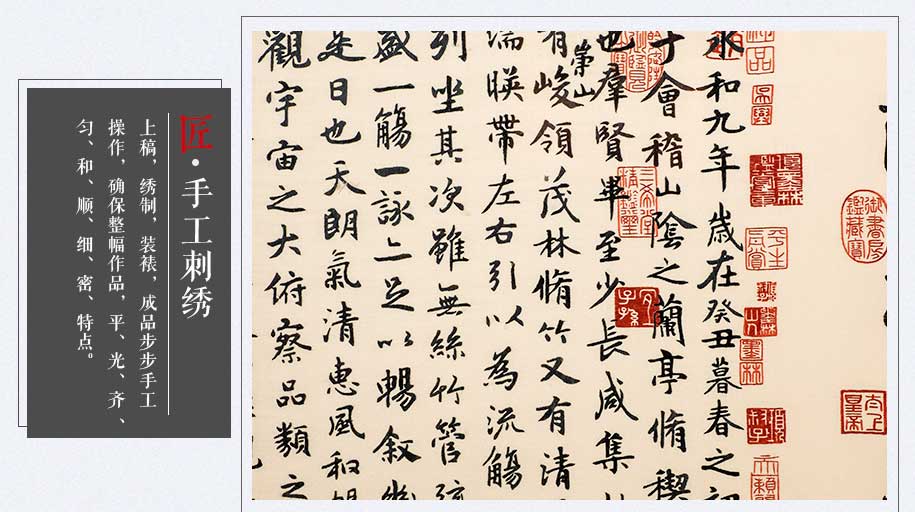 匠·手工刺绣
上稿，绣制，装裱，成品步步手工
操作，确保整幅作品，平、光、齐、
匀、和、顺、细、密、特点。
永和九年歲在癸丑暮春之初
于會稽山陰之蘭亭脩稧
也羣賢畢至少長咸集
崇山
有峻領茂林脩竹又有清
湍暎帶左右引以為流觴
列坐其次雖無絲竹管弦
盛一觴一詠亦足以暢敘幽
是日也天朗氣清惠風和暢
觀宇宙之大俯察品類之
御書房鑑藏寶
太上皇帝
子孫